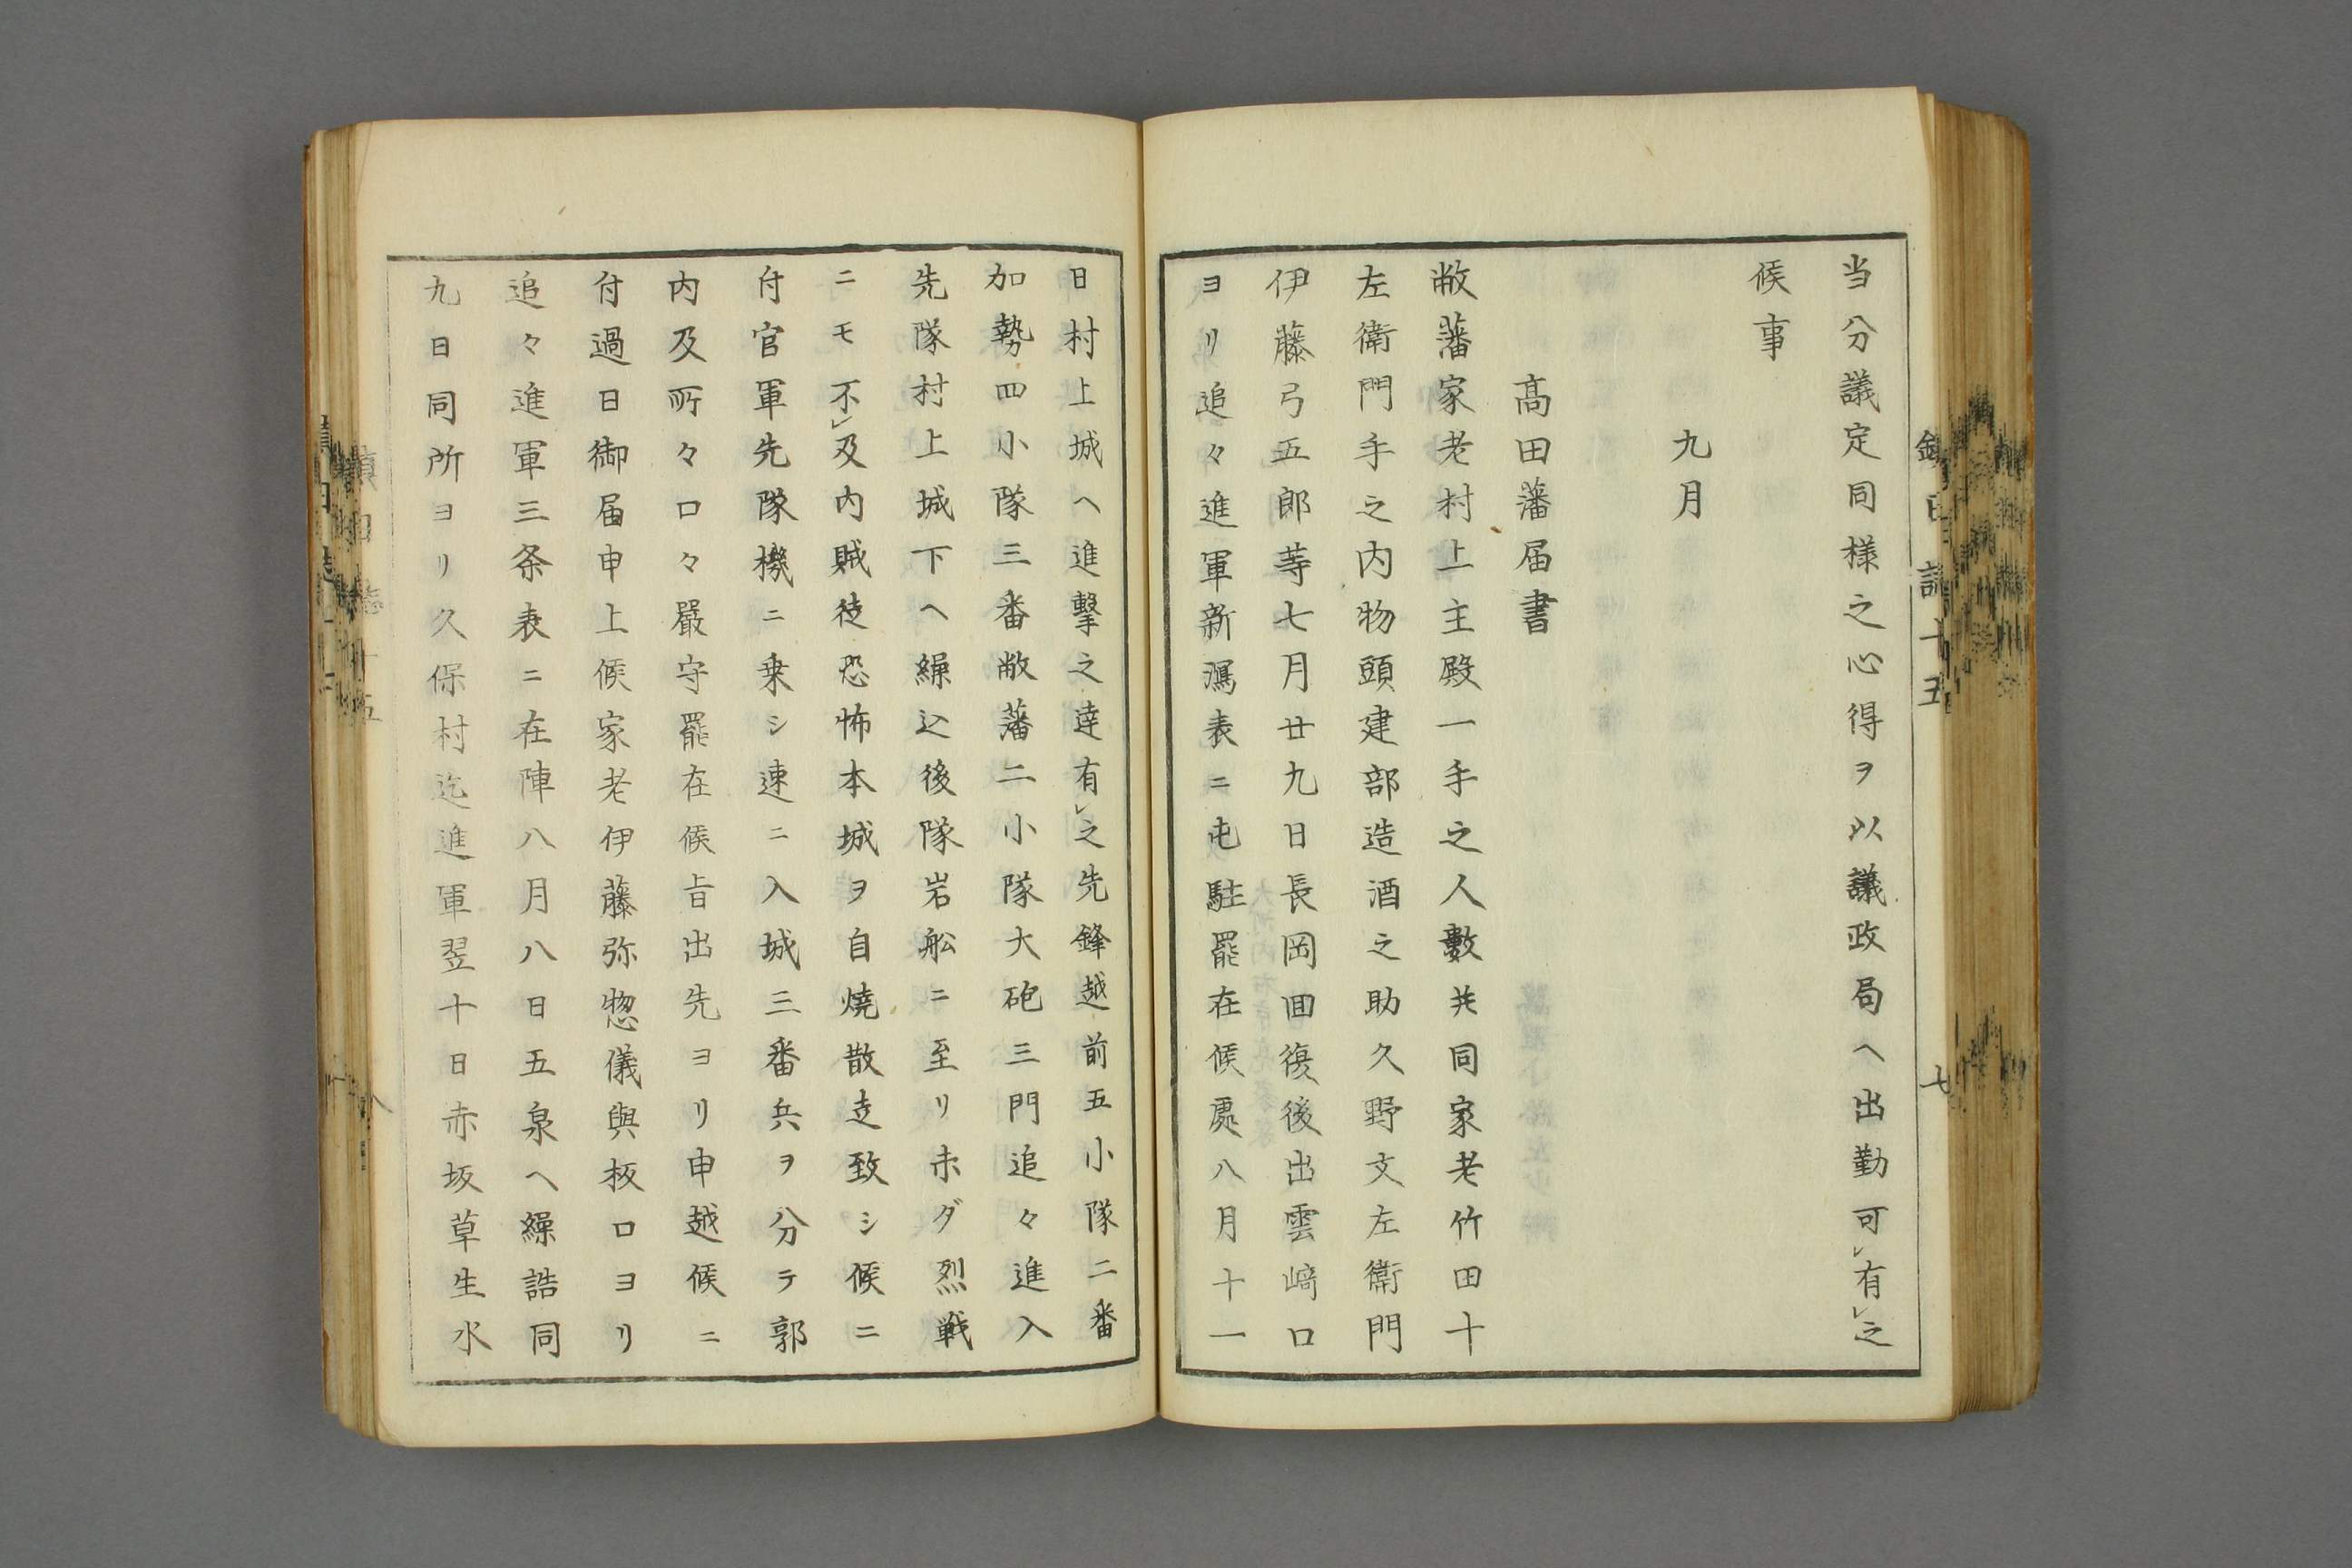 当分議定同様之心得ヲ以議政局ヘ出勤可㆑有㆑之
候事
九月
髙田藩届書
敝藩家老村上主殿一手之人數共同家老竹田十
左衛門手之内物頭建部造酒之助久野文左衛門
伊藤弓五郎䓁七月廿九日長岡回復後出雲﨑口
ヨリ追々進軍新潟表ニ屯駐罷在候處八月十一
日村上城ヘ進擊之達有㆑之先鋒越前五小隊二番
加勢四小隊三番敝藩二小隊大砲三門追々進入
先隊村上城下ヘ繰込後隊岩舩ニ至リ未ダ烈戦
ニモ不㆑及内賊徒恐怖本城ヲ自燒散走致シ候ニ
付官軍先隊機ニ乗シ速ニ入城三番兵ヲ分テ郭
内及所々口々嚴守罷在候旨出先ヨリ申越候ニ
付過日御届申上候家老伊藤弥惣儀與板口ヨリ
追々進軍三条表ニ在陣八月八日五泉ヘ繰詰同
九日同所ヨリ久保村迄進軍翌十日赤坂草生水